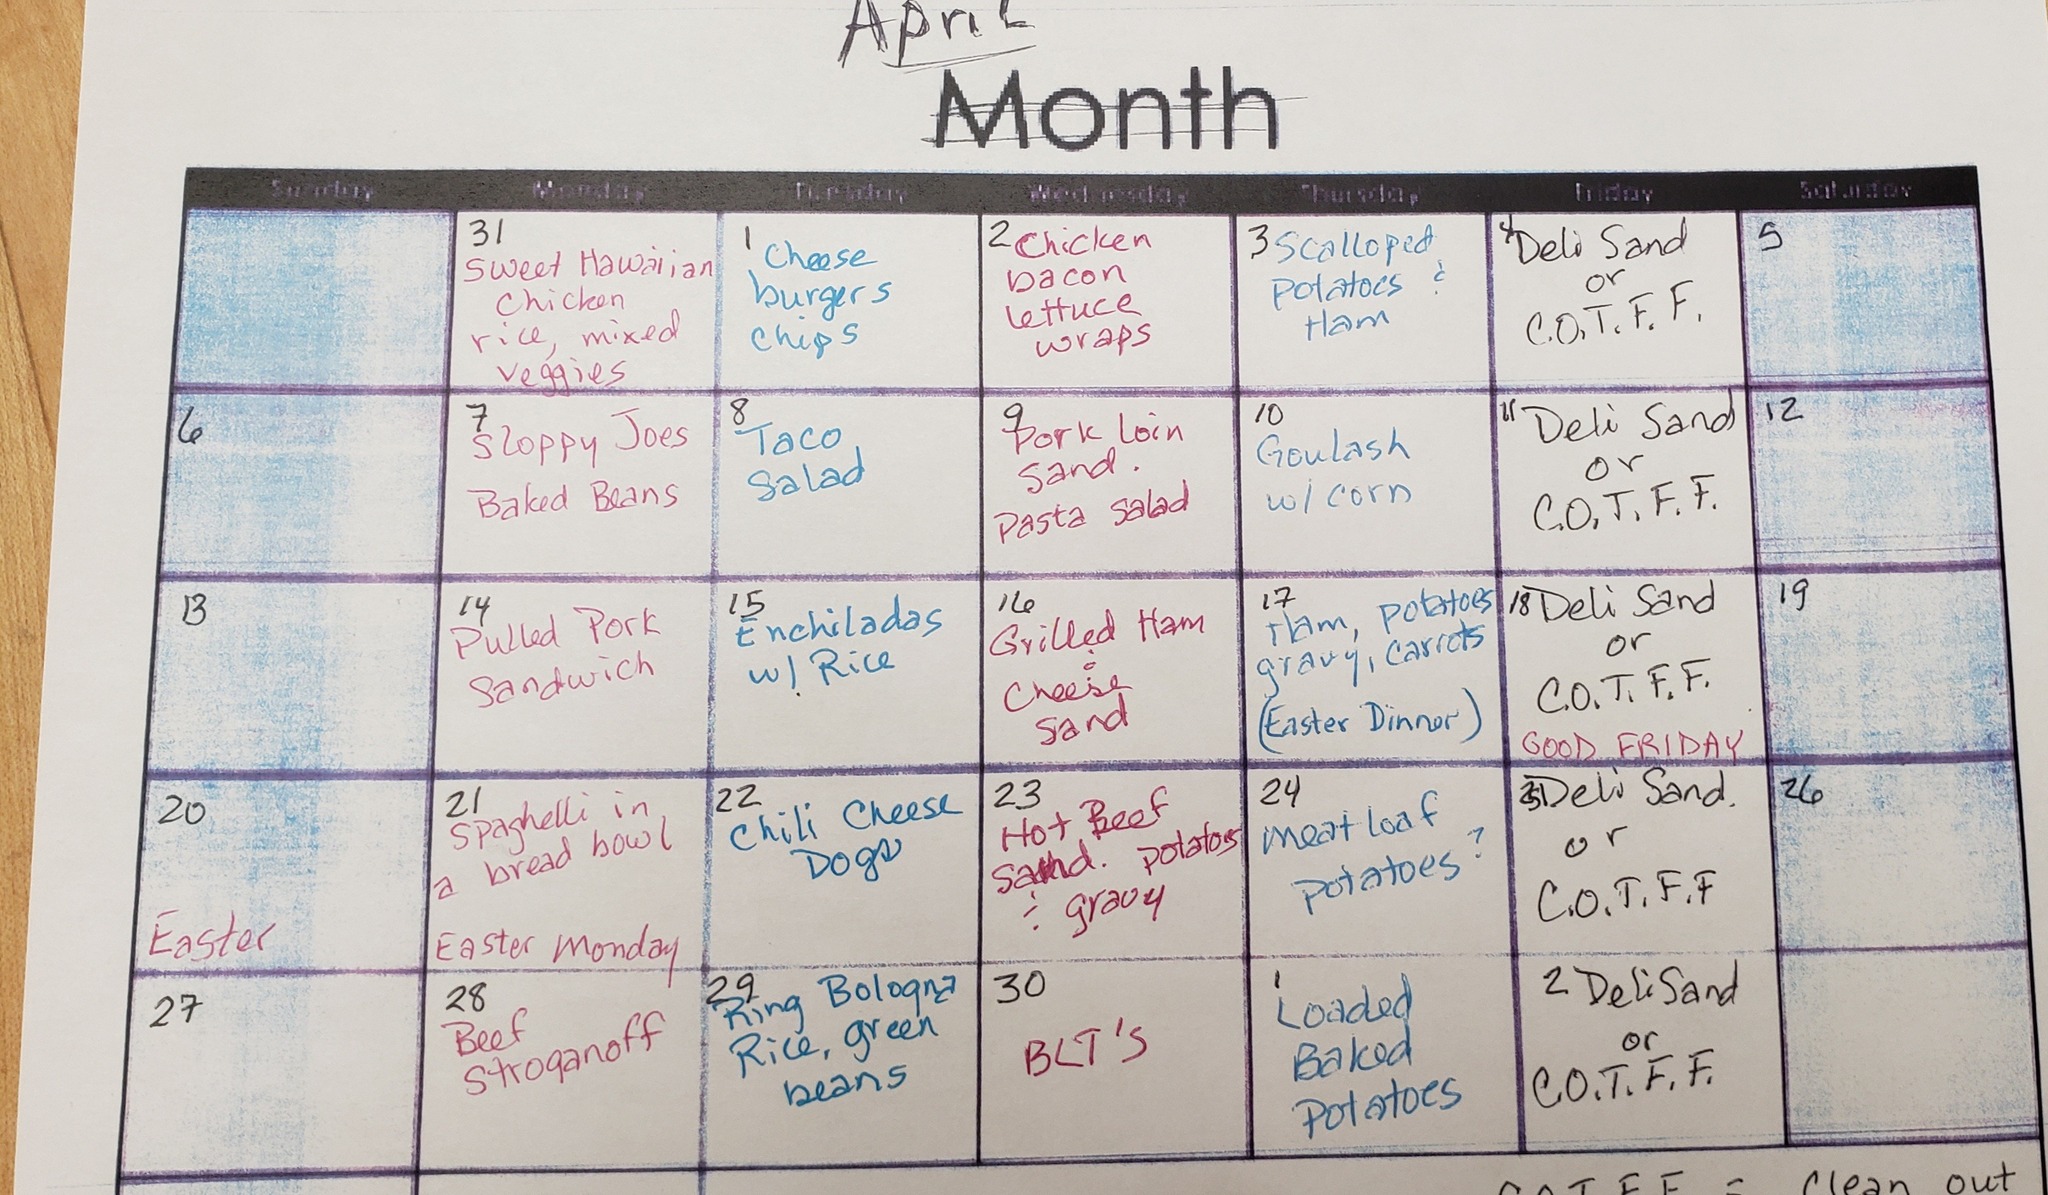 April
Month
Sunday Monday Tuesday Wednesday Thursday Friday Saturday
31
Sweet Hawaiian
Chicken
rice, mixed
veggies
1 Cheese
burgers
chips
2 Chicken
bacon
lettuce
wraps
3 Scalloped
potatoes &
Ham
4 Deli Sand
or
C.O.T.F.F.
5
6
7
Sloppy Joes
Baked Beans
8
Taco
Salad
9
Pork loin
Sand.
Pasta Salad
10
Goulash
w/ corn
11 Deli Sand
or
C.O.T.F.F.
12
13
14
Pulled Pork
Sandwich
15
Enchiladas
w/ Rice
16
Grilled Ham
&
Cheese
Sand
17
Ham, potatoes
gravy, carrots
(Easter Dinner)
18 Deli Sand
or
C.O.T.F.F.
GOOD FRIDAY
19
20
Easter
21
Spaghetti in
a bread bowl
Easter Monday
22
Chili Cheese
Dogs
23
Hot Beef
Sand. potatoes
& gravy
24
Meatloaf
potatoes ?
25 Deli Sand.
or
C.O.T.F.F
26
27
28
Beef
Stroganoff
29
Ring Bologna
Rice, green
beans
30
BLT's
1
Loaded
Baked
Potatoes
2 Deli Sand
or
C.O.T.F.F.
C.O.T.F.F. = Clean out